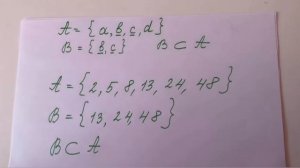 A = {a, b, c, d}
B = {b, c} B ⊂ A
A = {2, 5, 8, 13, 24, 48}
B = {13, 24, 48}
B ⊂ A